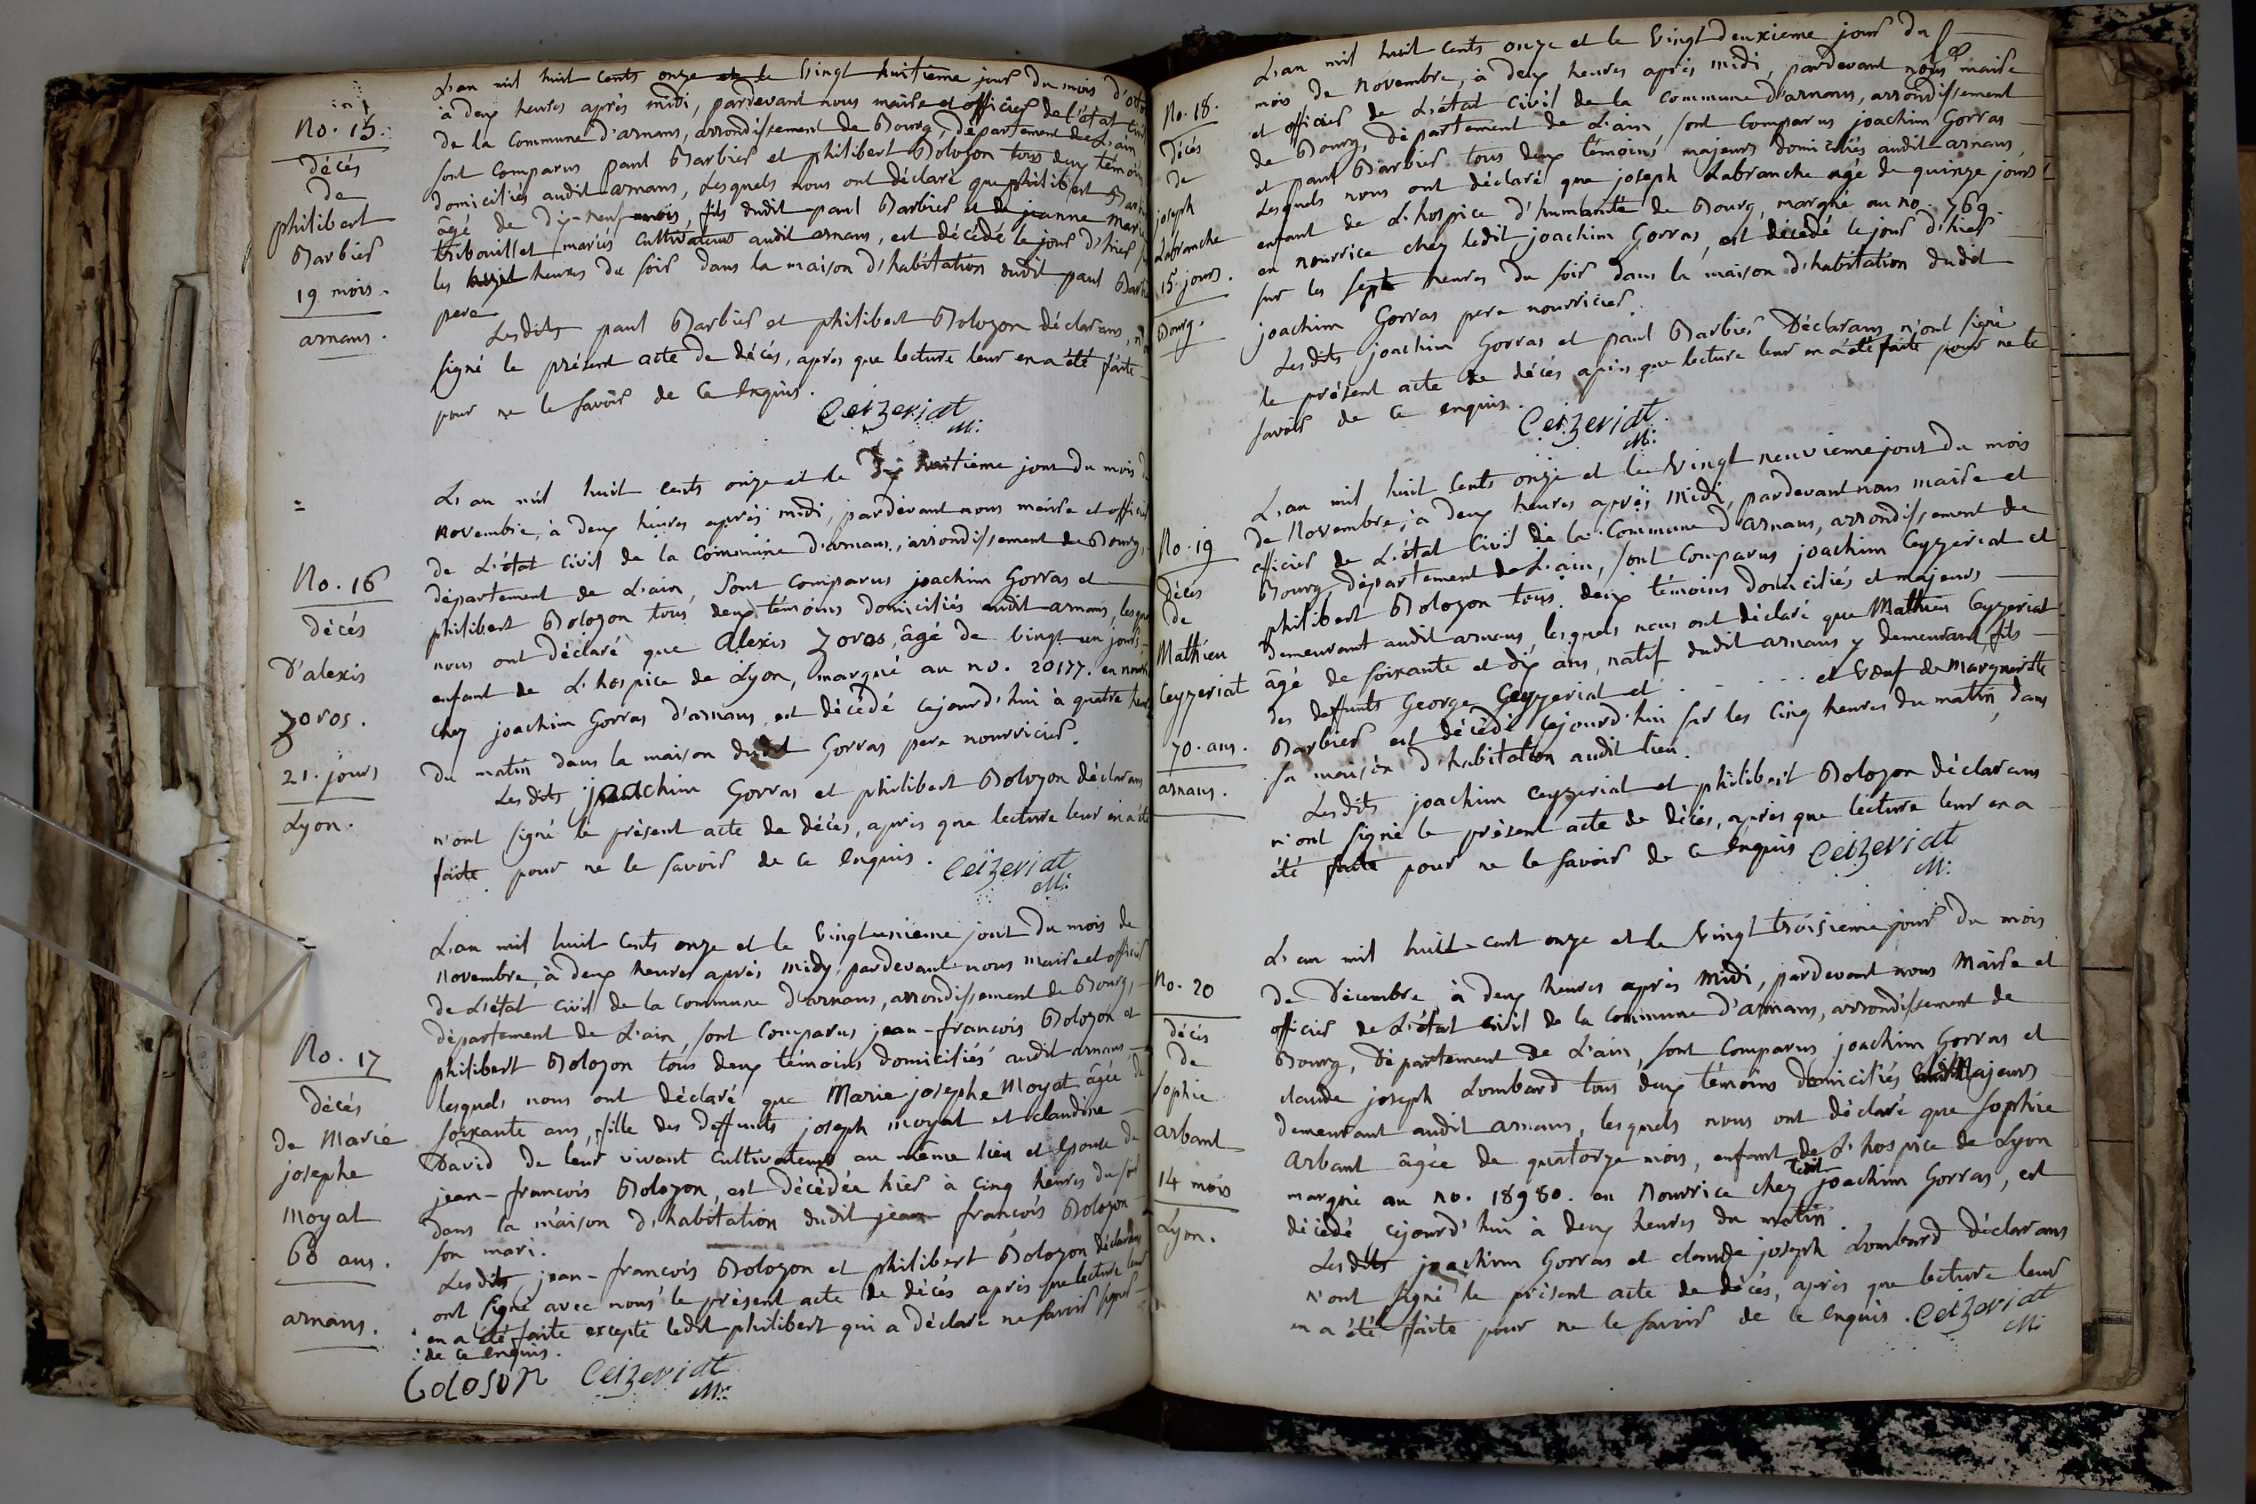 No. 15.
décés
de
philibert
Barbier
19 mois.
arnans.
L'an mil huit cents onze et le vingt huitieme jour du mois d'octo
à deux heures après midi, pardevant nous maire et officier de l'état civil
de la Commune d'arnans, arrondissement de Bourg, département de L'ain
sont Comparus paul Barbier et philibert Bolozon tous deux témoins
domiciliés audit arnans, Lesquels nous ont déclaré que philibert Barbier
âgé de dix-neuf mois, fils dudit paul Barbier et de jeanne Marie
thibouillet mariés cultivateurs audit arnans, est décédé le jour d'hier
les heures du soir dans la maison d'habitation dudit paul Barbier
pere
Lesdits paul Barbier et philibert Bolozon déclarans, n'ont
signé le présent acte de décés, après que lecture leur en a été faite
pour ne le savoir de ce enquis.
Ceizeriat
M:
No. 16
décés
D'alexis
zoros.
21. jours
Lyon.
L'an mil huit cents onze et le dix huitieme jour du mois de
novembre, à deux heures après midi, pardevant nous maire et officier
de L'état civil de la Commune d'arnans, arrondissement de Bourg,
département de L'ain, Sont comparus joachim Gorras et
philibert Bolozon tous deux témoins domiciliés audit arnans, lesquels
nous ont déclaré que Alexis Zoros, âgé de vingt un jours
enfant de L'hospice de Lyon, marqué au no. 20177. en nourrice
chez joachim Gorras d'arnans, est décédé cejourd'hui à quatre heures
du matin dans la maison dudit Gorras pere nourricier.
Lesdits joachim Gorras et philibert Bolozon déclarans
n'ont signé le présent acte de décés, après que lecture leur en a été
faite pour ne le savoir de ce enquis.
Ceizeriat
M:
No. 17
décés
de Marie
josephe
Moyat
60 ans.
arnans.
L'an mil huit cents onze et le vingtunieme jour du mois de
novembre, à deux heures après midy, pardevant nous maire et officier
de L'état civil de la Commune d'arnans, arrondissement de Bourg,
département de L'ain, sont Comparus jean-françois Bolozon et
philibert Bolozon tous deux témoins domiciliés audit arnans
lesquels nous ont déclaré que Marie josephe Moyat âgée de
soixante ans, fille des deffunts joseph moyat et claudine
David de leur vivant cultivateurs au même lieu et Epouse de
jean-françois Bolozon, est décédée hier à cinq heures du soir
dans la maison d'habitation dudit jean françois Bolozon
son mari.
Lesdits jean-françois Bolozon et philibert Bolozon déclarans
ont signé avec nous le présent acte de décés après que lecture leur
en a été faite excepté ledit philibert qui a déclaré ne savoir signer
de ce enquis.
boloson Ceizeriat
M:
No. 18.
décés
de
joseph
Labranche
15. jours.
Bourg.
L'an mil huit cents onze et le vingt deuxieme jour du
mois de novembre, à deux heures après midi, pardevant nous maire
et officier de L'état civil de la Commune d'arnans, arrondissement
de Bourg, département de L'ain, sont Comparus joachim Gorras
et paul Barbier tous deux témoins majeurs domiciliés audit arnans,
Lesquels nous ont déclaré que joseph Labranche agé de quinze jours
enfant de L'hospice d'humanité de Bourg, marqué au no. 769.
en nourrice chez ledit joachim Gorras, est décédé le jour d'hier
sur les sept heures du soir dans la maison d'habitation dudit
joachim Gorras pere nourricier.
Lesdits joachim Gorras et paul Barbier Déclarans n'ont signé
le présent acte de décés après que lecture leur en a été faite pour ne le
savoir de ce enquis.
Ceizeriat
M:
No. 19
Décés
de
Mathieu
Ceyzeriat
70. ans.
arnans.
L'an mil huit Cents onze et le vingt neuvieme jour du mois
de Novembre, à deux heures après midi, pardevant nous maire et
officier de L'état civil de la Commune d'arnans, arrondissement de
Bourg, département de L'ain, sont Comparus joachim Ceyzeriat et
philibert Bolozon tous deux témoins domiciliés et majeurs
demeurant audit arnans, lesquels nous ont déclaré que Mathieu Ceyzeriat
âgé de soixante et dix ans, natif dudit arnans y demeurant, fils
des deffunts George Ceyzeriat et . . . . . et veuf de Marguerite
Barbier est décédé cejourd'hui sur les cinq heures du matin, dans
sa maison d'habitation audit lieu.
Lesdits joachim ceyzeriat et philibert Bolozon déclarans
n'ont signé le présent acte de décés, après que lecture leur en a
été faite pour ne le savoir de ce enquis
Ceizeriat
M:
No. 20
décés
De
sophie
arbant
14 mois
Lyon.
L'an mil huit-cent onze et le vingt troisieme jour du mois
de décembre, à deux heures après midi, pardevant nous Maire et
officier de L'état civil de la Commune d'arnans, arrondissement de
Bourg, département de L'ain, sont Comparus joachim Gorras et
claude joseph Lombard tous deux témoins domiciliés Majeurs
demeurant audit arnans, lesquels nous ont déclaré que sophie
arbant âgée de quatorze mois, enfant de L'hospice de Lyon
marqué au no. 18980. en Nourrice chez ledit joachim Gorras, est
décédé, cejourd'hui à deux heures du matin.
Lesdits joachim Gorras et claude joseph Lombard déclarans
n'ont signé le présent acte de décés, après que lecture leur
en a été faite pour ne le savoir de ce enquis.
Ceizeriat
M: